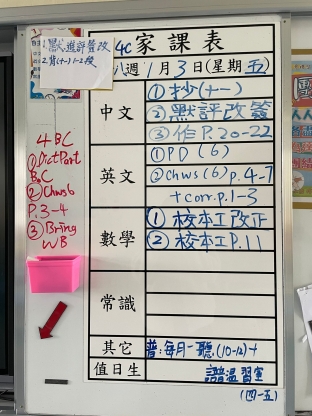 1. 默進評簽改
2. 背(十一)1-2段
4C 家課表
八週 1月3日(星期五)
中文
① 抄(十一)
② 默評改簽
③ 作P.20-22
英文
① PD (6)
② Chws (6) p.4-7
+ corr p.1-3
數學
① 校本工改正
② 校本工P.11
常識
其它
普:每月一聽(10-12)+
值日生
譜溫習室
(四-五)
4BC
① Dict Part
B, C
② Chws 6
P.3-4
③ Bring
WB